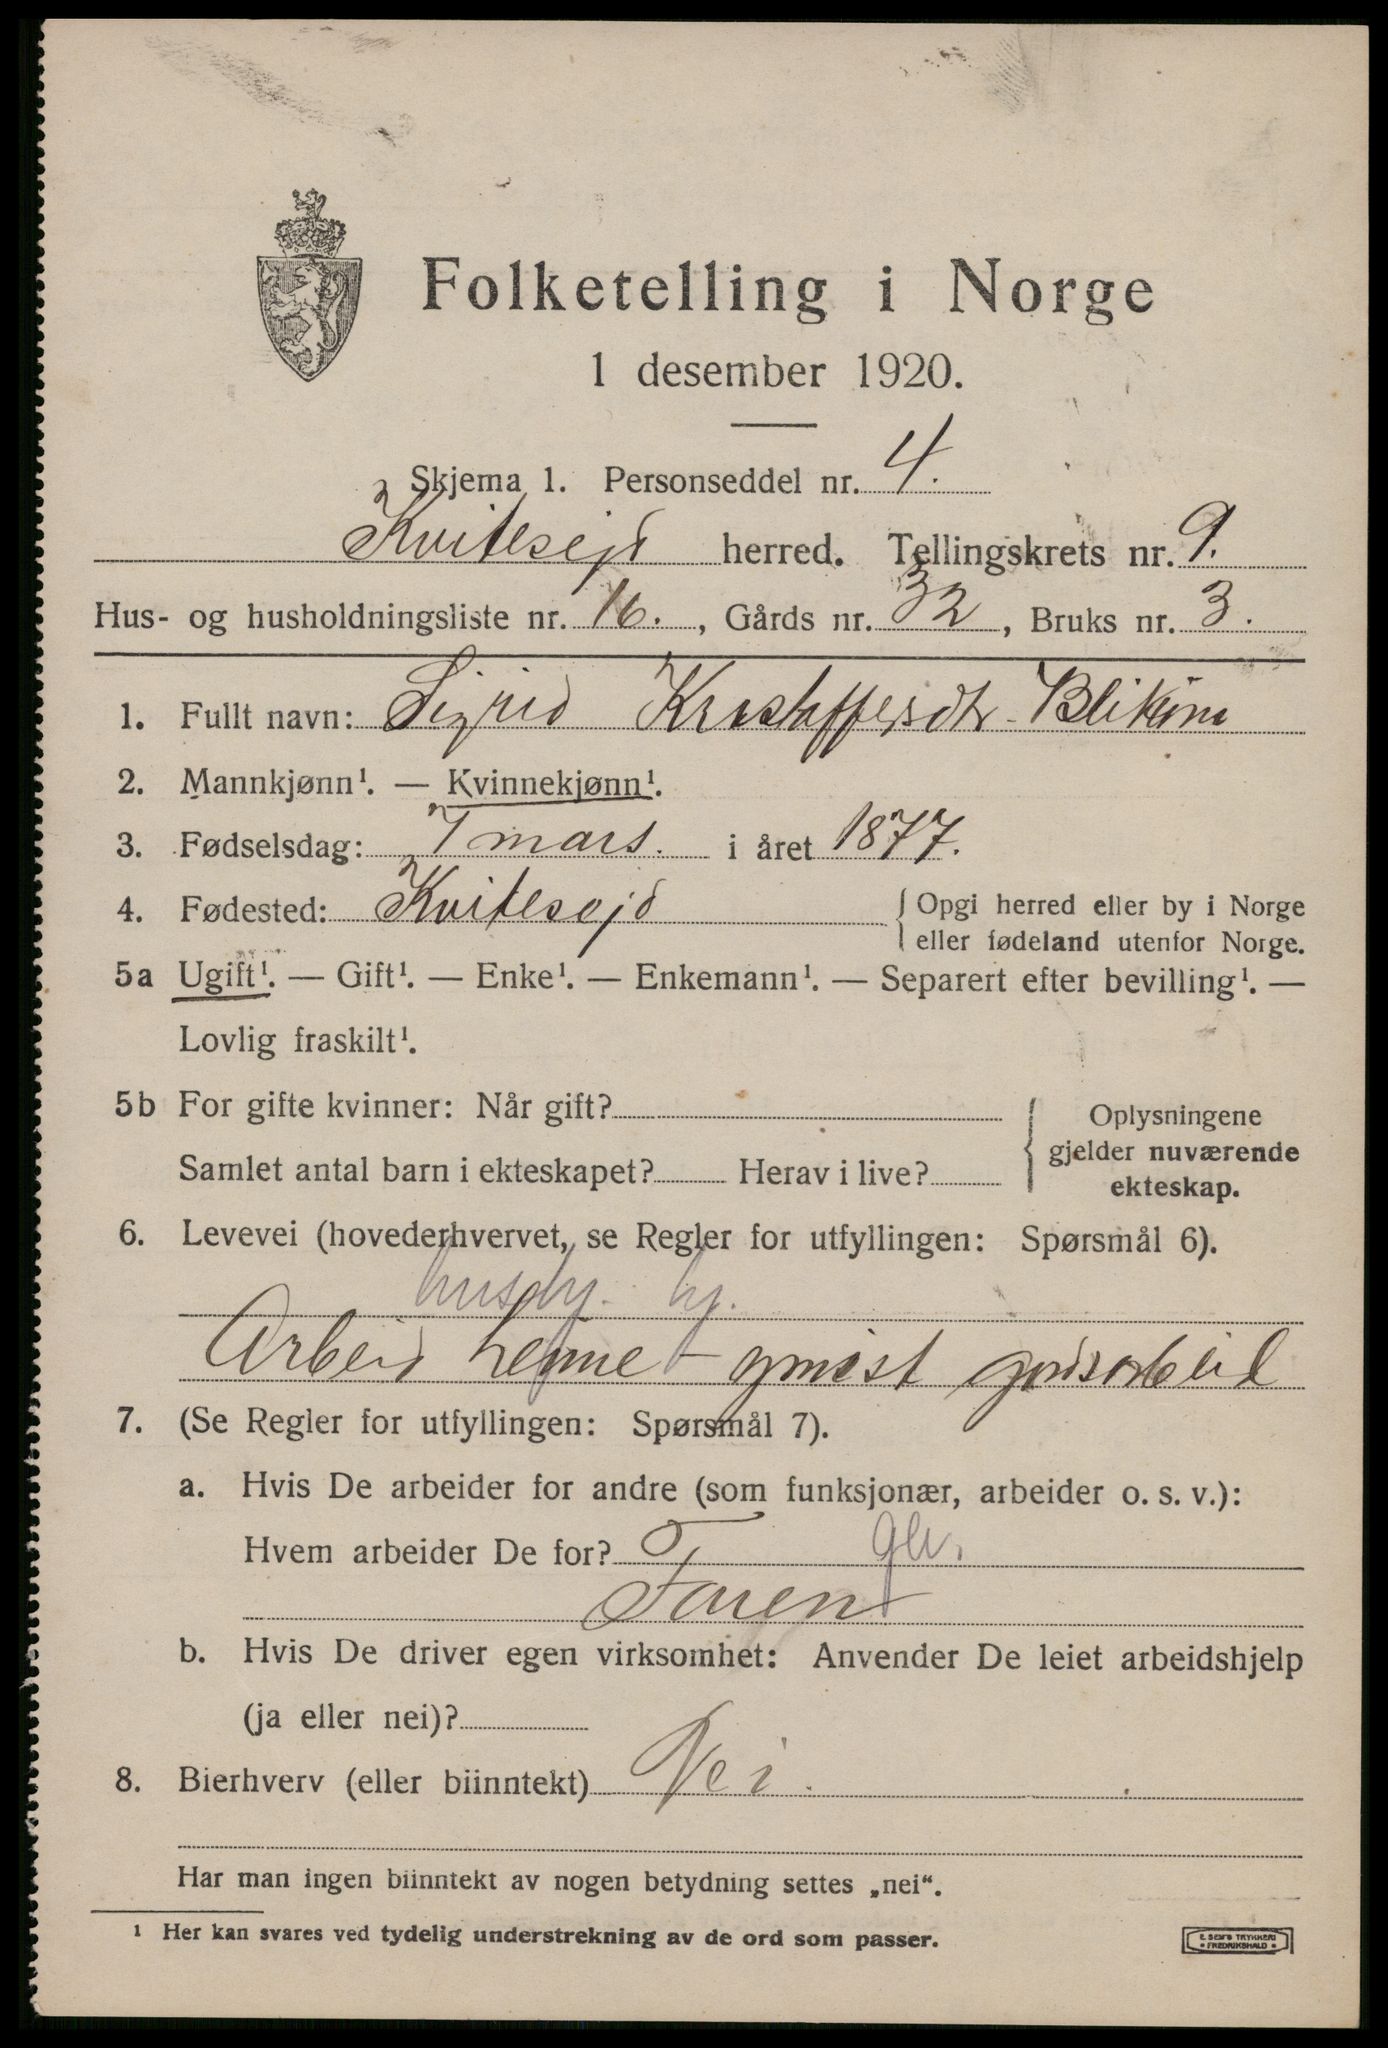 Folketelling i Norge
1 desember 1920.
Skjema 1. Personseddel nr. 4.
Kvitesejd herred. Tellingskrets nr. 9.
Hus- og husholdningsliste nr. 16., Gårds nr. 32, Bruks nr. 3.
1. Fullt navn: Sigrid Kristoffersdtr. Blikom
2. Mannkjønn¹. — Kvinnekjønn¹.
3. Fødselsdag: 7 mars. i året 1877.
4. Fødested: Kvitesejd { Opgi herred eller by i Norge
eller fødeland utenfor Norge.
5a Ugift¹. — Gift¹. — Enke¹. — Enkemann¹. — Separert efter bevilling¹. —
Lovlig fraskilt¹.
5b For gifte kvinner: Når gift? { Oplysningene
gjelder nuværende
Samlet antal barn i ekteskapet? Herav i live? ekteskap.
6. Levevei (hovederhvervet, se Regler for utfyllingen: Spørsmål 6).
husby. hj.
Arbeid heime - ymist
7. (Se Regler for utfyllingen: Spørsmål 7).
a. Hvis De arbeider for andre (som funksjonær, arbeider o. s. v.):
Hvem arbeider De for?
Faren
b. Hvis De driver egen virksomhet: Anvender De leiet arbeidshjelp
(ja eller nei)?
8. Bierhverv (eller biinntekt) Nei.
Har man ingen biinntekt av nogen betydning settes „nei“.
¹ Her kan svares ved tydelig understrekning av de ord som passer.
E. SEM'S TRYKKERI
• FREDRIKSHALD •